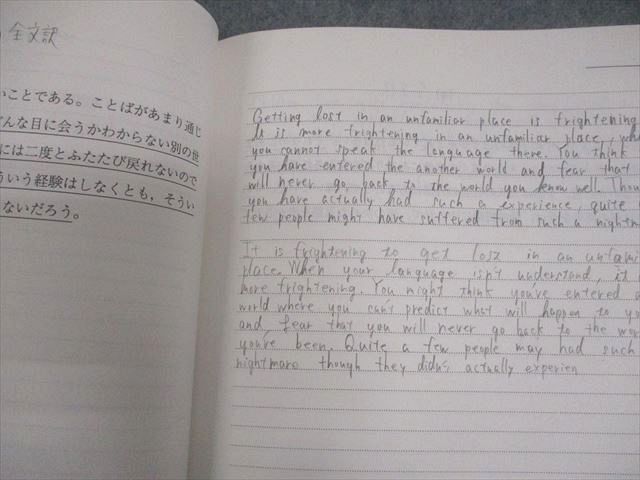 全文訳
いことである。ことばがあまり通じ
んな目に会うかわからない別の世
には二度とふたたび戻れないので
ういう経験はしなくとも，そうい
ないだろう。
Getting lost in an unfamiliar place is frightening
is more frightening in an unfamiliar place, whe
you cannot speak the language there. You think
you have entered the another world and fear that
will never go back to the world you know well. Thou
you have actually had such a experience, quite
few people might have suffered from such a nightm
It is frightening to get lost in an unfami
place. When your language isn't understand, it
more frightening. You might think you've entered
world where you can't predict what will happen to yo
and, fear that you will never go back to the wor
you've been. Quite a few people may had such
nightmare though they didn't actually experien